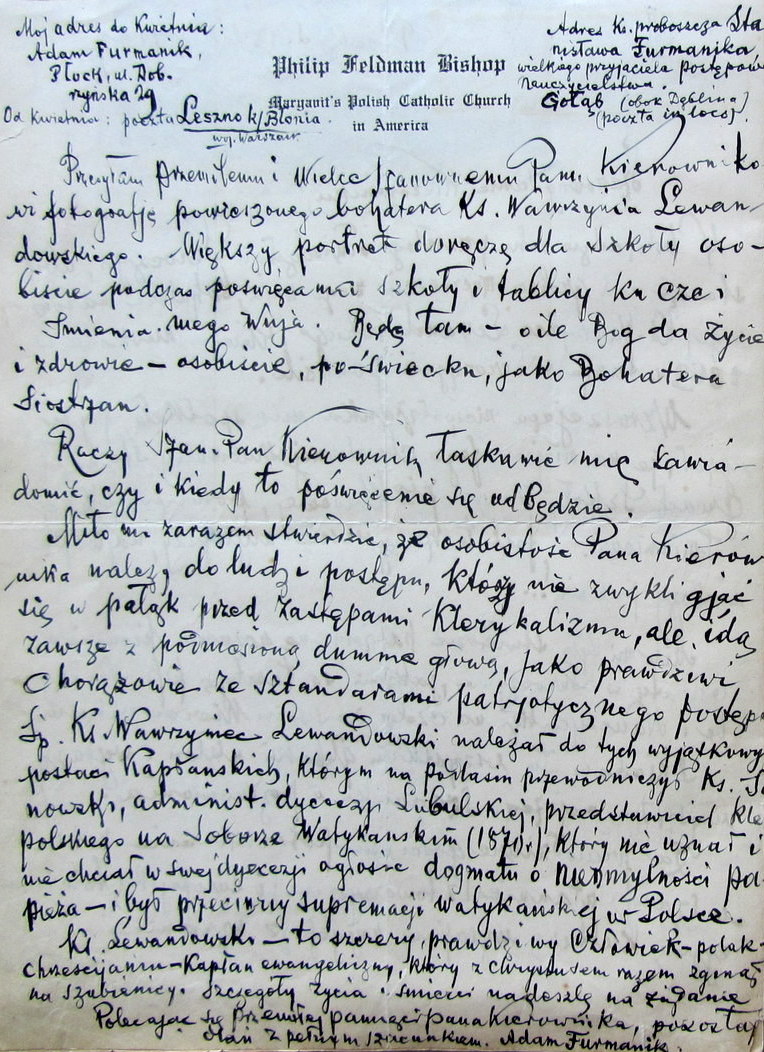 Mój adres do Kwietnia:
Adam Furmanik,
Płock, ul. Dob-
rzyńska 29
Od Kwietnia: poczta Leszno k/Błonia
woj. Warszaw.
Philip Feldman Bishop
Maryavit's Polish Catholic Church
in America
Adres Ks. proboszcza Sta
nisława Furmanika,
wielkiego przyjaciela postępow
Nauczycielstwa.
Gołąb (obok Dęblina)
(poczta in loco).
Przesyłam Przemiłemu i Wielce Szanownemu Panu Kierowniko-
wi fotografję powieszonego bohatera Ks. Wawrzyńca Lewan-
dowskiego. Większy portret doręczę dla Szkoły oso-
biście podczas poświęcania szkoły i tablicy ku czci
Imienia mego Wuja. Będę tam – o ile Bóg da życie
i zdrowie – osobiście, po-świecku, jako Bohatera
Siostrzan.
Raczy Szan. Pan Kierownik łaskawie mię zawia-
domić, czy i kiedy to poświęcenie się odbędzie.
Miło mi zarazem stwierdzić, że osobistość Pana Kierow
nika należą do ludzi postępu, którzy nie zwykli giąć
się w pałąk przed zastępami Klerykalizmu, ale idą
zawsze z podniesioną dumnie głową, jako prawdziwi
Chorążowie ze sztandarami patrjotycznego postępu
Śp. Ks. Wawrzyniec Lewandowski należał do tych wyjątkowy
postaci Kapłańskich, którym na Podlasiu przewodniczył Ks. S
nowski, administ. dyecezji Lubelskiej, przedstawiciel kle
polskiego na Soborze Watykańskim (1870r), który nie uznał i
nie chciał w swej dyecezji ogłosić dogmatu o nieomylności pa-
pieża – i był przeciwny supremacji watykańskiej w Polsce.
Ks. Lewandowski – to szczery, prawdziwy Człowiek-polak-
chrześcijanin-Kapłan ewangeliczny, który z Chrystusem razem zginął
na szubienicy. Szczegóły życia i śmierci nadeszlę na żądanie
Polecając się Przemiłej pamięci pana Kierownika, pozostaj
z pełnym szacunkiem. Adam Furmanik.